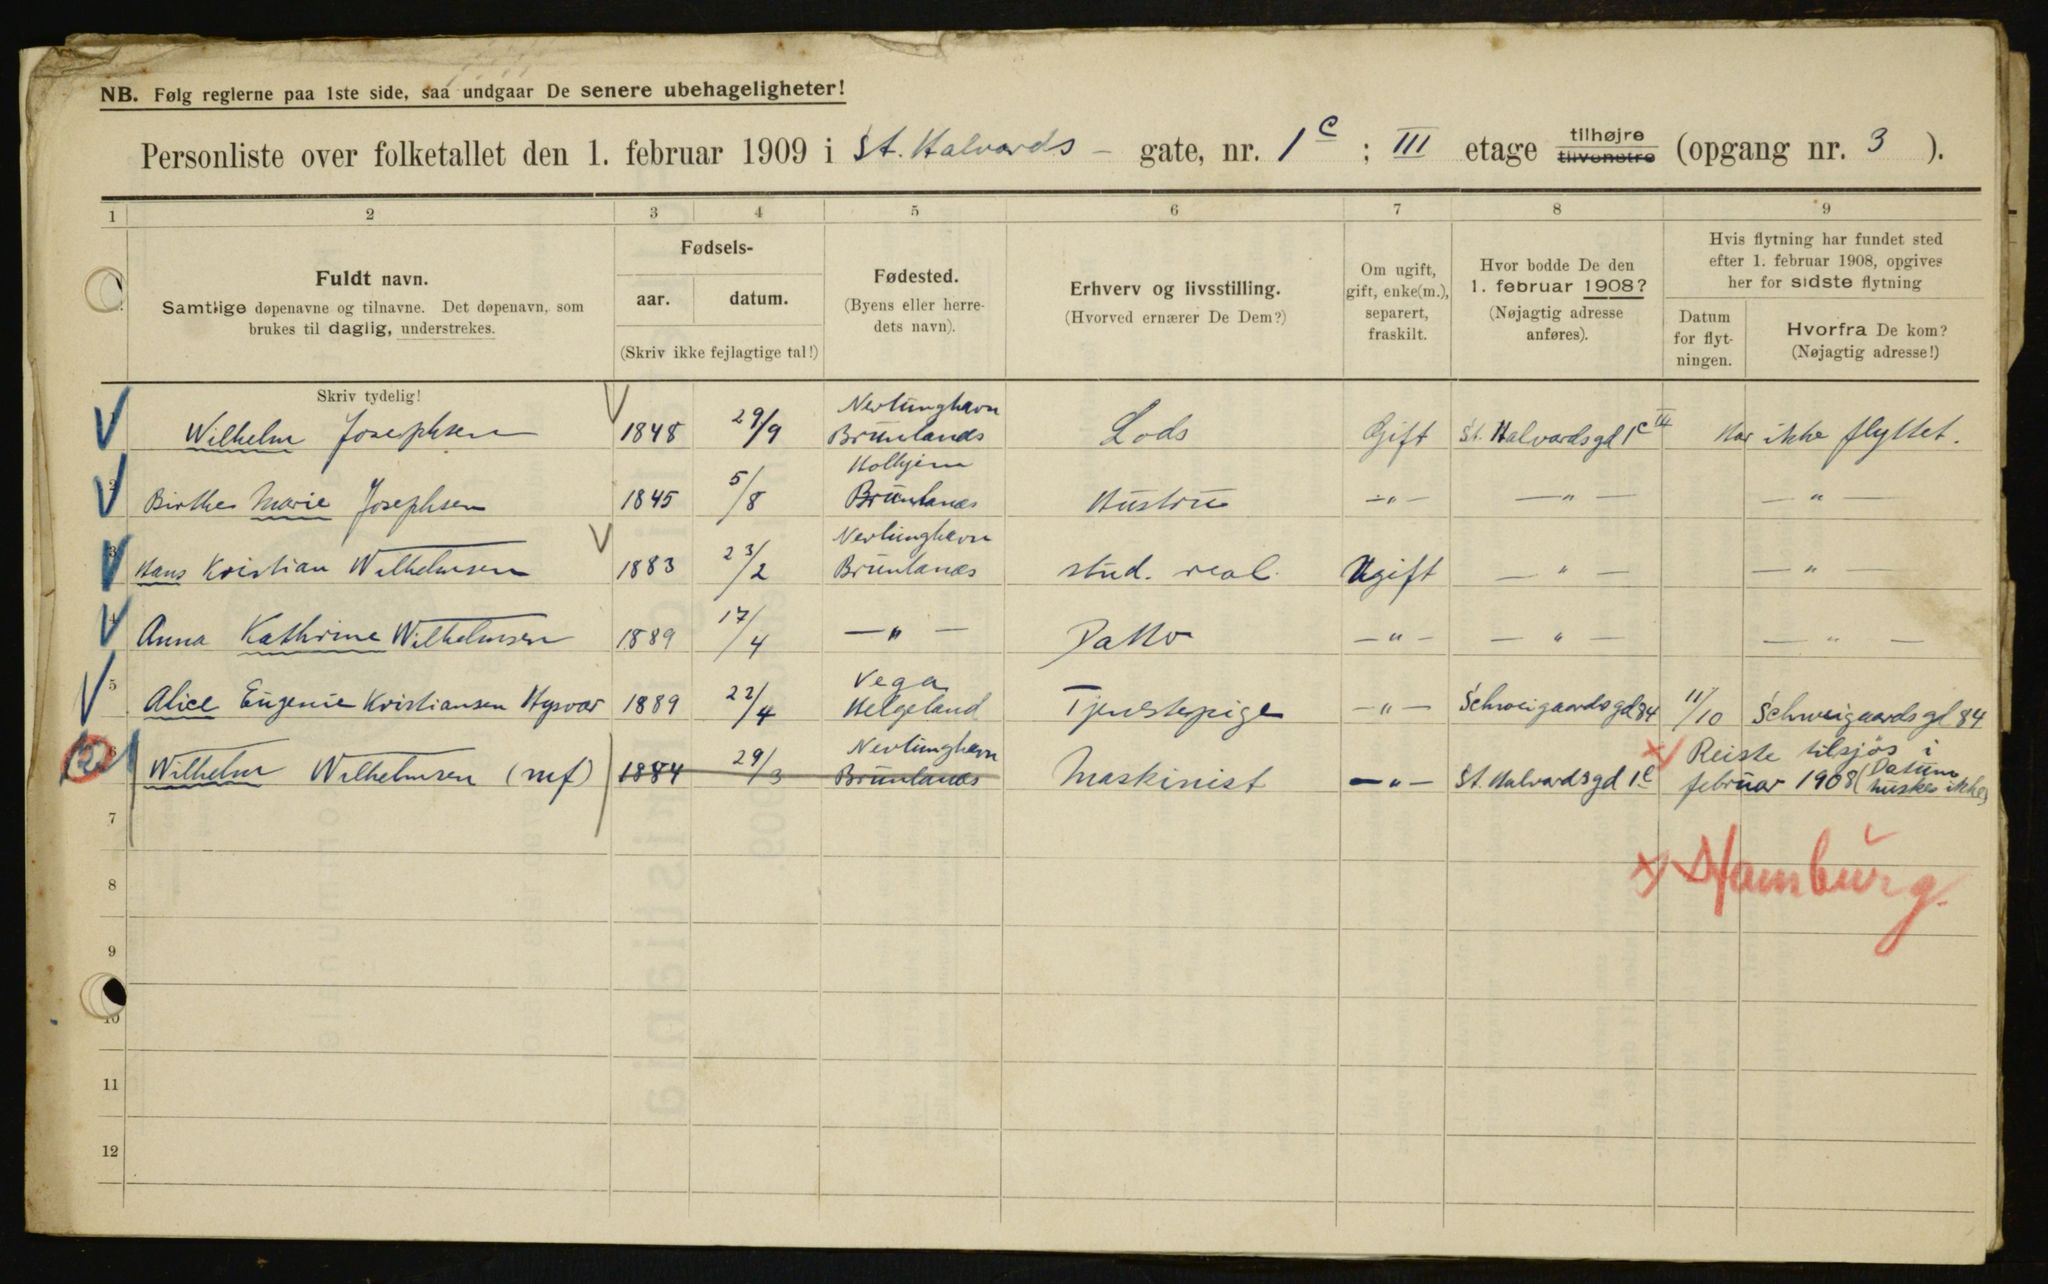 NB. Følg reglerne paa 1ste side, saa undgaar De senere ubehageligheter!
Personliste over folketallet den 1. februar 1909 i St. Halvards - gate, nr. 1c ; III etage tilhøjre tilvenstre (opgang nr. 3 ).
1 2 3 4 5 6 7 8 9
Fuldt navn.
Samtlige døpenavne og tilnavne. Det døpenavn, som
brukes til daglig, understrekes.
Fødsels-
aar. datum.
(Skriv ikke fejlagtige tal!)
Fødested.
(Byens eller herre-
dets navn).
Erhverv og livsstilling.
(Hvorved ernærer De Dem?)
Om ugift,
gift, enke(m.),
separert,
fraskilt.
Hvor bodde De den
1. februar 1908?
(Nøjagtig adresse
anføres).
Hvis flytning har fundet sted
efter 1. februar 1908, opgives
her for sidste flytning
Datum
for flyt-
ningen.
Hvorfra De kom?
(Nøjagtig adresse!)
Skriv tydelig!
1 Wilhelm Josephsen 1848 29/9 Nevlunghavn Brunlanæs Lods Gift St. Halvardsgd 1c III Har ikke flyttet.
2 Birthe Marie Josephsen 1845 5/8 Brunlanæs Hustru —"— —"— —"—
3 Hans Kristian Wilhelmsen 1883 23/2 Nevlunghavn Brunlanæs stud. real. Ugift —"— —"—
4 Anna Kathrine Wilhelmsen 1889 17/4 —"— Datter —"— —"— —"—
5 Alice Eugenie Kristiansen Hysvær 1889 22/4 Vega Helgeland Tjenestepige —"— Schweigaardsgd 84 11/10 Schweigaardsgd 84
6 Wilhelm Wilhelmsen (mf) 1884 29/3 Nevlunghavn Brunlanæs Maskinist —"— St. Halvardsgd 1c x) Reiste tilsjøs i
februar 1908 (Datum
huskes ikke)
7
x) Hamburg.
8
9
10
11
12